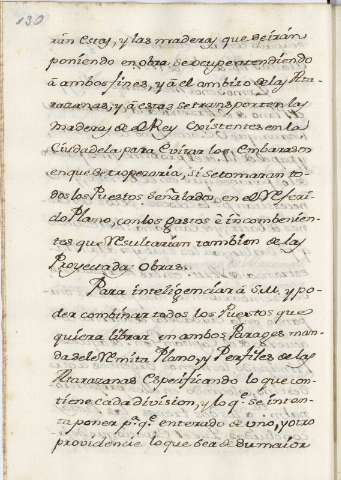 130
rán Estas, y las maderas que se irán
poniendo en obra. Se ocupe atendiendo
â ambos fines, y â el ambito de las Ata-
razanas; y â estas se transporten las
maderas de el Rey Existentes en la
Ciudadela para Evitar los Embarasos
en que se tropezaria, si se tomaran to-
dos los Puestos Señalados, en el Referi-
do Plano, con los gastos é incombenien-
tes que Resultarian tambien de las
Proyectadas Obras.
Para inteligencia râ S.M. y po-
der combinar todos los Puertos que
quiera librar en ambos Parages man-
da se le Remita Plano, y Perfiles de las
Atarazanas Espesificando lo que con-
tiene cada division, y lo q.e se inten-
ta poner p.a q.e enterado de uno, y otro
providencie lo que sea de su maior